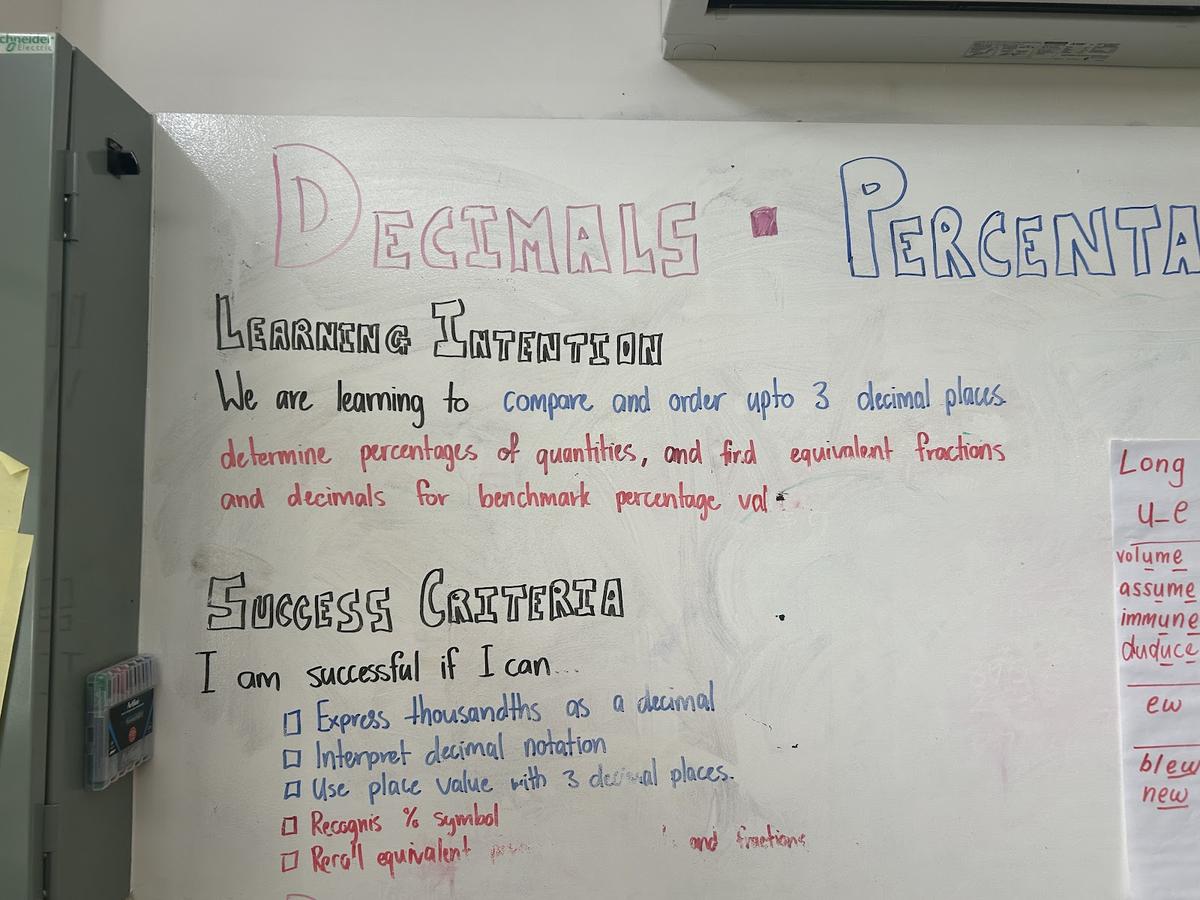 Schneider
Electric
DECIMALS ▪ PERCENTA
LEARNING INTENTION
We are learning to compare and order upto 3 decimal places.
determine percentages of quantities, and find equivalent fractions
and decimals for benchmark percentage val
SUCCESS CRITERIA
I am successful if I can...
□ Express thousandths as a decimal
□ Interpret decimal notation
□ Use place value with 3 decimal places.
□ Recognis % symbol
□ Recall equivalent and fractions
Long
u_e
volume
assume
immune
duduce
ew
blew
new